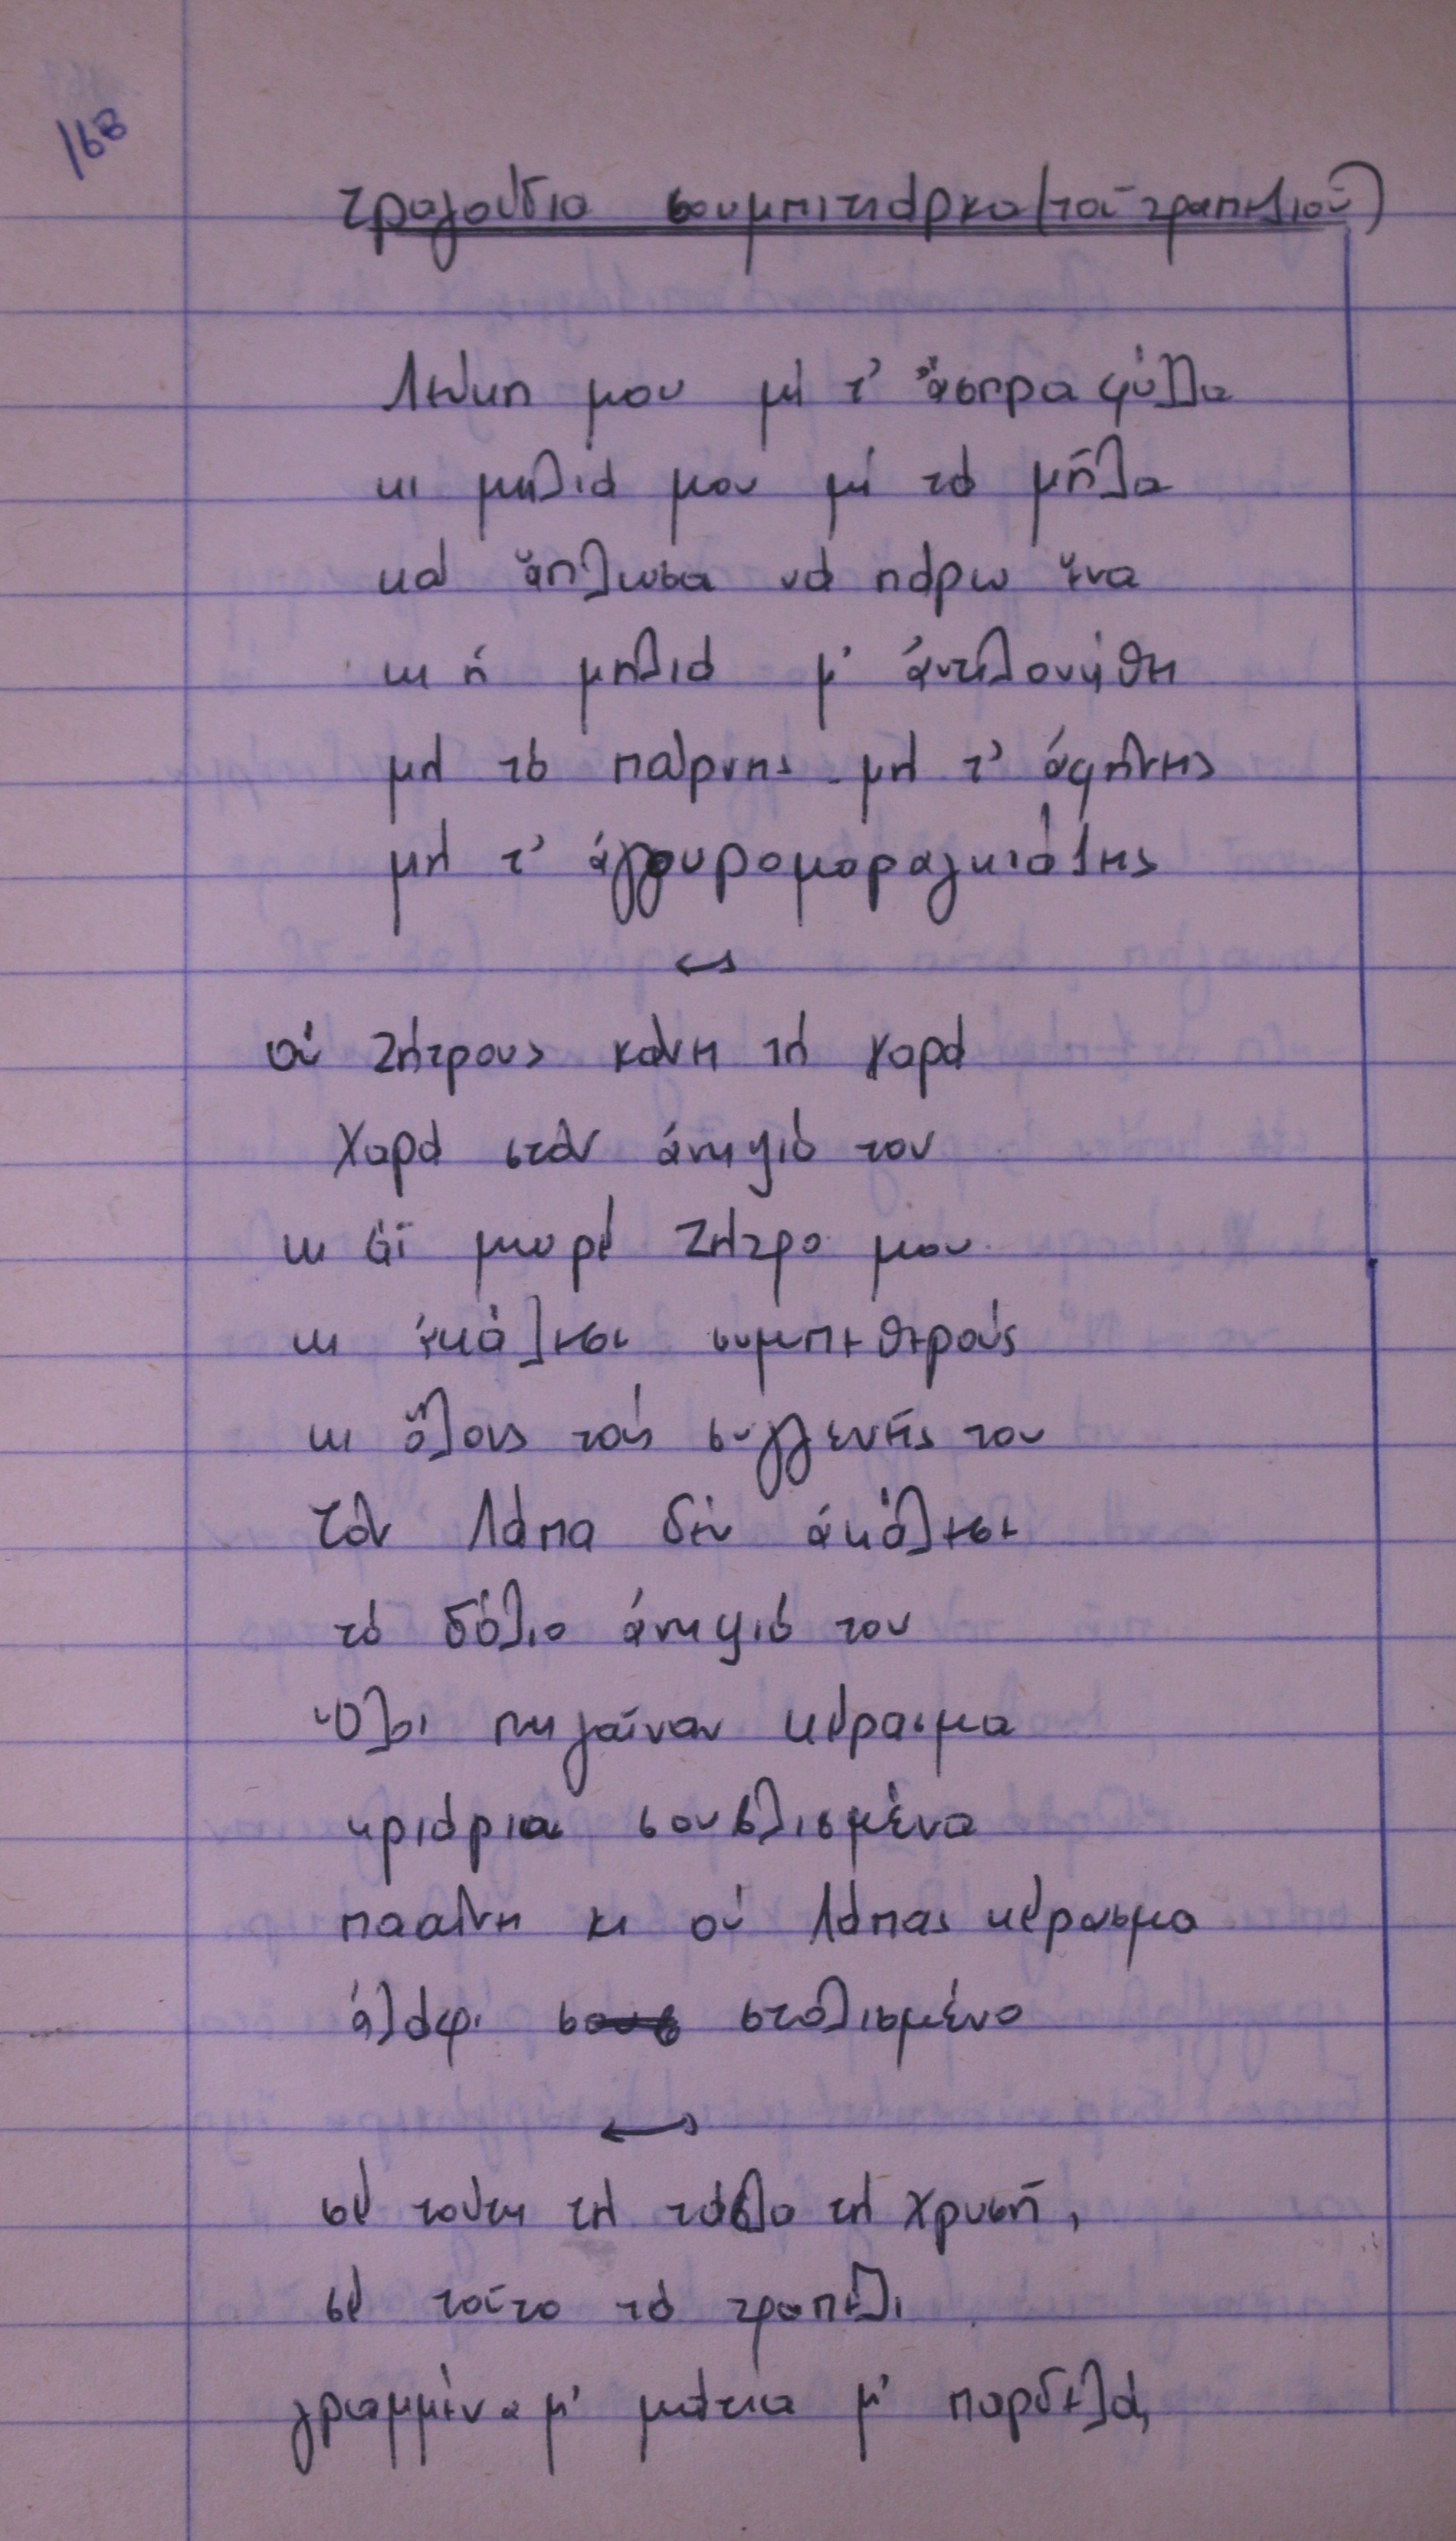 168
τραγούδια σουμπιτιάρκα (τοῦ τραπεζιοῦ)
Λεύκη μου μέ τ' ἄσπρα φύλλα
κι μηλιά μου μέ τά μῆλα
καί ἅπλωσα νά πάρω ἕνα
κι ἡ μηλιά μ' ἀντιλουήθη
μή τό παίρνης μή τ' ἀφήνης
μή τ' ἀγουρομαραγκιάζης
οὑ Ζήτρους κάνη τή χαρά
χαρά στόν ἀνηψιό του
κι ἀϊ μωρέ Ζήτρο μου
κι ἐκάλεσε συμπεθερούς
κι ὅλους τούς συγγενῆς του
τόν Λάπα δέν ἀκάλεσε
τό δόλιο ἀνηψιό του
Ὅλοι πηγαῖναν κέρασμα
κριάρια σουβλισμένα
πααίνη κι οὑ Λάπας κέρασμα
ἀλάφι στολισμένο
σέ τούτη τή τάβλα τή χρυσῆ,
σέ τοῦτο τό τραπέζι
γραμμένα μ' μάτια μ' παρδελά,